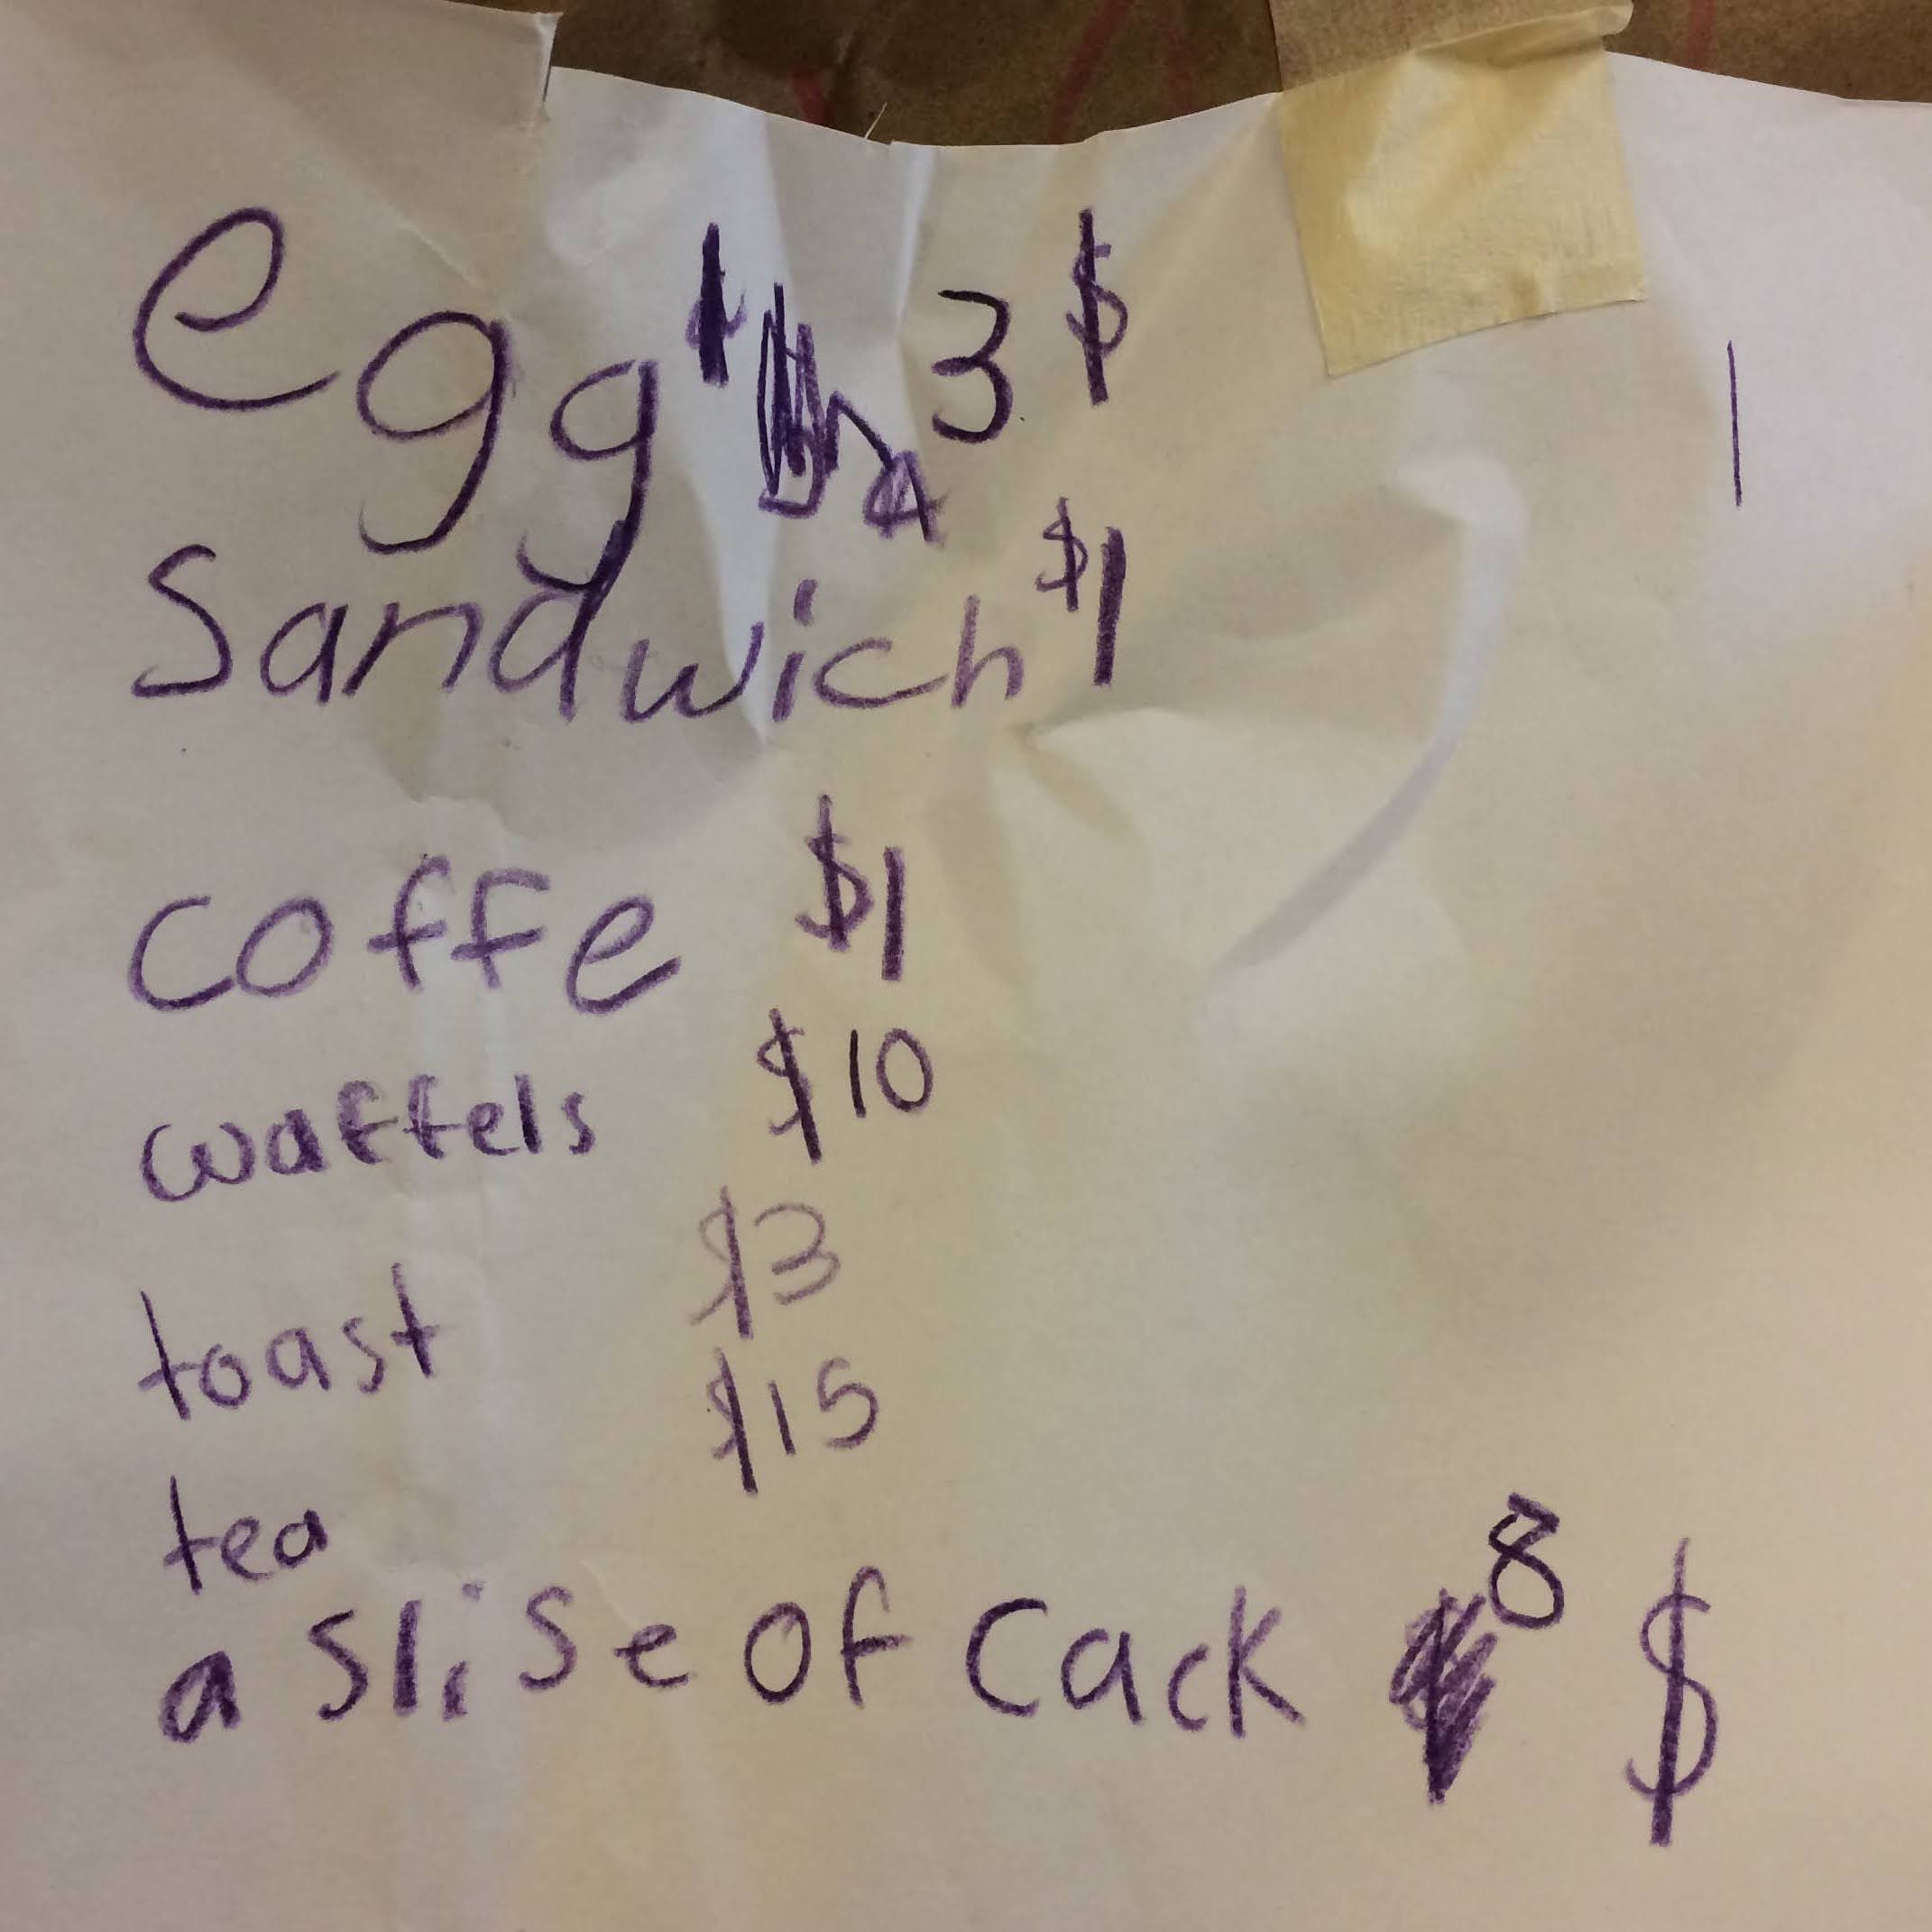 egg 3 $
Sandwich $1
coffe $1
waffels $10
toast $3
tea $15
a slise of cack 8 $